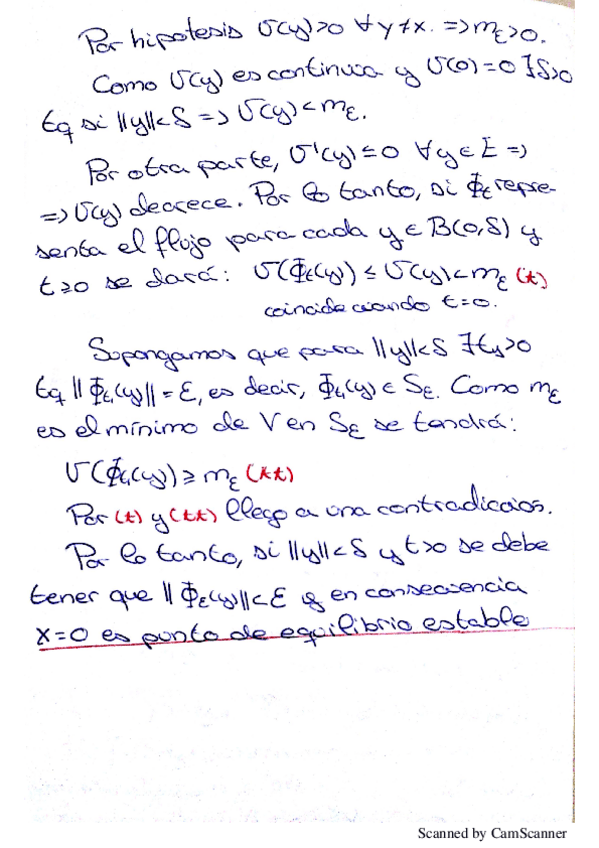 Por hipotesis U(y)>0 ∀y≠x. => m_ε>0.
Como U(y) es continua y U(0)=0 ∃δ>0
tq si ||y||<δ => U(y)<m_ε.
Por otra parte, U'(y)≤0 ∀y∈E =>
=> U(y) decrece. Por lo tanto, si Φ_t repre-
senta el flujo para cada y∈B(0,δ) y
t≥0 se dará: U(Φ_t(y)) ≤ U(y)<m_ε (t)
coincide cuando t=0.
Supongamos que para ||y||<δ ∃t₁>0
tq ||Φ_t₁(y)|| = ε, es decir, Φ_t₁(y) ∈ S_ε. Como m_ε
es el mínimo de V en S_ε se tendrá:
U(Φ_t₁(y)) ≥ m_ε (tt)
Por (t) y (tt) llego a una contradiccion.
Por lo tanto, si ||y||<δ y t>0 se debe
tener que ||Φ_t(y)||<ε y en consecuencia
x=0 es punto de equilibrio estable
Scanned by CamScanner